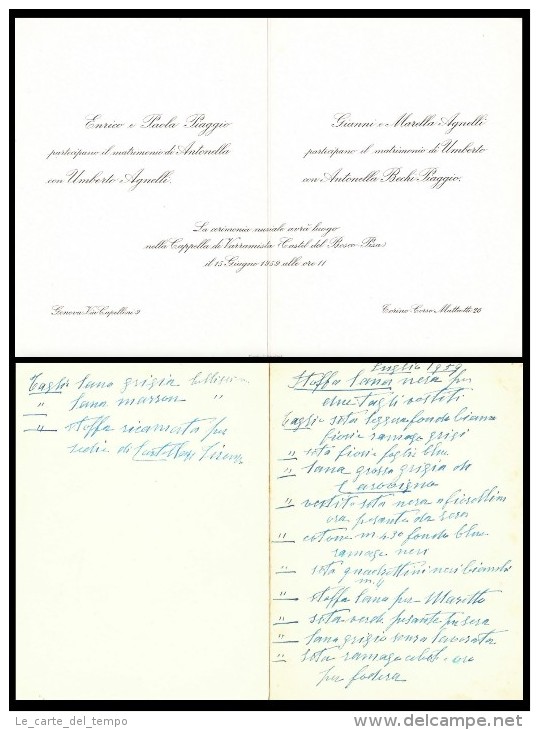 Enrico e Paola Piaggio
partecipano il matrimonio di Antonella
con Umberto Agnelli.
Gianni e Marella Agnelli
partecipano il matrimonio di Umberto
con Antonella Bechi Piaggio.
La cerimonia nuziale avrà luogo
nella Cappella di Varramista (Castel del Bosco-Pisa)
il 15 Giugno 1959 alle ore 11
Genova Via Capellini 3
Torino Corso Matteotti 26
Taglio lana grigia
" lana marron "
" stoffa ricamata per
sedie di
Luglio 1959
Stoffa lana nera per
due tagli vestiti
Taglio seta leggera fondo bianco
fiori e ramage grigi
" seta fiori e foglie blu
" lana grossa grigia di
Carovigna
" vestito seta nera a fiorellini
oro pesante da sera
" cotone m 4.30 fondo blu
ramage neri
" seta quadrettini neri bianchi
m. 4
" stoffa lana per Maretto
" seta verde pesante per sera
" lana grigio senza lavorata
" seta ramage e oro
per fodera
Le_carte_del_tempo
www.delcampe.net